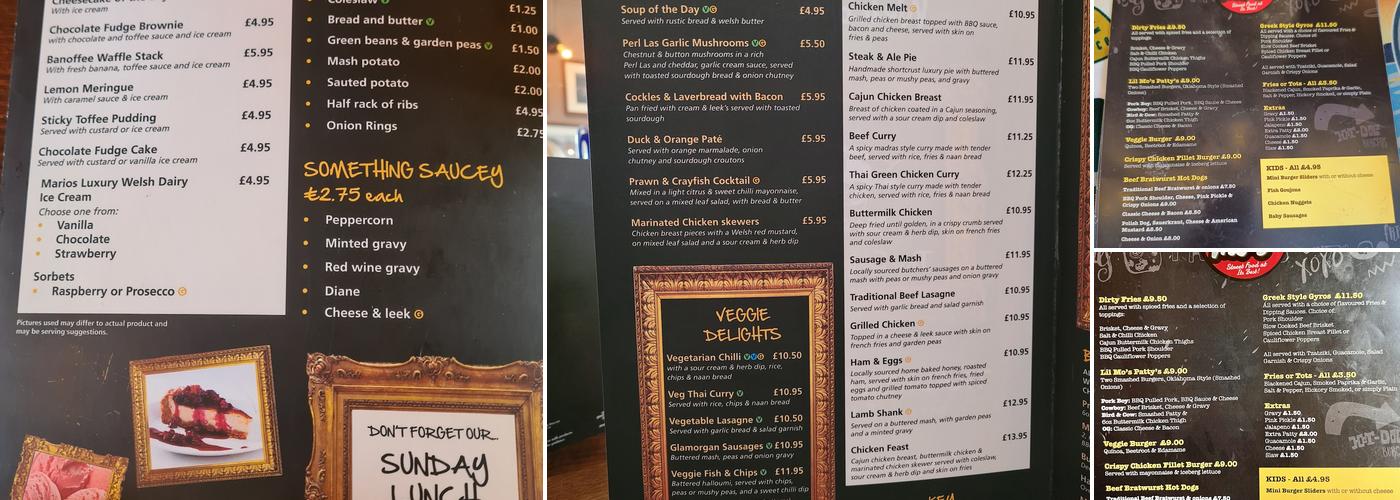 With ice cream
Chocolate Fudge Brownie £4.95
with chocolate and toffee sauce and ice cream
Banoffee Waffle Stack £5.95
With fresh banana, toffee sauce and ice cream
Lemon Meringue £4.95
With caramel sauce & ice cream
Sticky Toffee Pudding £4.95
Served with custard or ice cream
Chocolate Fudge Cake £4.95
Served with custard or vanilla ice cream
Marios Luxury Welsh Dairy £4.95
Ice Cream
Choose one from:
Vanilla
Chocolate
Strawberry
Sorbets
Raspberry or Prosecco G
Pictures used may differ to actual product and
may be serving suggestions.
Coleslaw £1.25
Bread and butter V £1.00
Green beans & garden peas V £1.50
Mash potato £2.00
Sauteed potato £2.00
Half rack of ribs £4.95
Onion Rings £2.75
SOMETHING SAUCEY
£2.75 each
Peppercorn
Minted gravy
Red wine gravy
Diane
Cheese & leek G
DON'T FORGET OUR...
SUNDAY
LUNCH
Soup of the Day V G £4.95
Served with rustic bread & welsh butter
Perl Las Garlic Mushrooms V G £5.50
Chestnut & button mushrooms in a rich
Perl Las and cheddar, garlic cream sauce, served
with toasted sourdough bread & onion chutney
Cockles & Laverbread with Bacon £5.95
Pan fried with cream & leek's served with toasted
sourdough
Duck & Orange Paté £5.95
Served with orange marmalade, onion
chutney and sourdough croutons
Prawn & Crayfish Cocktail G £5.95
Mixed in a light citrus & sweet chilli mayonnaise,
served on a mixed leaf salad, with bread & butter
Marinated Chicken skewers £5.95
Chicken breast pieces with a Welsh red mustard,
on mixed leaf salad and a sour cream & herb dip
VEGGIE
DELIGHTS
Vegetarian Chilli £10.50
with a sour cream & herb dip, rice,
chips & naan bread
Veg Thai Curry V £10.95
Served with rice, chips & naan bread
Vegetable Lasagne V £10.50
Served with garlic bread & salad garnish
Glamorgan Sausages V £10.95
Buttered mash, peas and onion gravy
Veggie Fish & Chips V £11.95
Battered halloumi, served with chips,
peas or mushy peas, and a sweet chilli dip
Chicken Melt G £10.95
Grilled chicken breast topped with BBQ sauce,
bacon and cheese, served with skin on
fries & peas
Steak & Ale Pie £11.95
Handmade shortcrust luxury pie with buttered
mash, peas or mushy peas, and gravy
Cajun Chicken Breast £11.95
Breast of chicken coated in a Cajun seasoning,
served with a sour cream dip and coleslaw
Beef Curry £11.25
A spicy madras style curry made with tender
beef, served with rice, fries & naan bread
Thai Green Chicken Curry £12.25
A spicy Thai style curry made with tender
chicken, served with rice, fries & naan bread
Buttermilk Chicken £10.95
Deep fried until golden, in a crispy crumb served
with sour cream & herb dip, skin on french fries
and coleslaw
Sausage & Mash £11.95
Locally sourced butchers' sausages on a buttered
mash with peas or mushy peas and onion gravy
Traditional Beef Lasagne £10.95
Served with garlic bread and salad garnish
Grilled Chicken G £10.95
Topped in a cheese & leek sauce with skin on
french fries and garden peas
Ham & Eggs G £10.95
Locally sourced home baked honey, roasted
ham, served with skin on french fries, fried
eggs and grilled tomato topped with spiced
tomato chutney
Lamb Shank G £12.95
Served on a buttered mash, with garden peas
and a minted gravy
Chicken Feast £13.95
Cajun chicken breast, buttermilk chicken &
marinated chicken skewer served with coleslaw,
sour cream & herb dip and skin on fries
KEY
Dirty Fries £9.50
All served with spiced fries and a selection of
toppings:
Brisket, Cheese & Gravy
Salt & Chilli Chicken
Cajun Buttermilk Chicken Thighs
BBQ Pulled Pork Shoulder
BBQ Cauliflower Poppers
Lil Mo's Patty's £9.00
Two Smashed Burgers, Oklahoma Style (Smashed
Onions)
Pork Boy: BBQ Pulled Pork, BBQ Sauce & Cheese
Cowboy: Beef Brisket, Cheese & Gravy
Bird & Cow: Smashed Patty &
6oz Buttermilk Chicken Thigh
OG: Classic Cheese & Bacon
Veggie Burger £9.00
Quinoa, Beetroot & Edamame
Crispy Chicken Fillet Burger £9.00
Served with mayonnaise & iceberg lettuce
Beef Bratwurst Hot Dogs
Traditional Beef Bratwurst & onions £7.50
BBQ Pork Shoulder, Cheese, Pink Pickle &
Crispy Onions £9.00
Classic Cheese & Bacon £8.50
Polish Dog, Saurkraut, Cheese & American
Mustard £8.50
Cheese & Onion £8.00
Greek Style Gyros £11.50
With a choice of flavoured Fries &
Dipping Sauces. Choice of:
Pork Shoulder
Slow Cooked Beef Brisket
Spiced Chicken Breast Fillet or
Cauliflower Poppers
All served with Tzatziki, Guacamole, Salad
Garnish & Crispy Onions
Fries or Tots - All £3.50
Blackened Cajun, Smoked Paprika & Garlic,
Salt & Pepper, Hickory Smoked, or simply Plain
Extras
Gravy £1.50
Pink Pickle £1.50
Jalapeno £1.50
Extra Patty £2.00
Guacamole £1.50
Cheese £1.50
Slaw £1.50
KIDS - All £4.95
Mini Burger Sliders with or without cheese
Fish Goujons
Chicken Nuggets
Baby Sausages
Street Food at
Its Best!
Dirty Fries £9.50
All served with spiced fries and a selection of
toppings:
Brisket, Cheese & Gravy
Salt & Chilli Chicken
Cajun Buttermilk Chicken Thighs
BBQ Pulled Pork Shoulder
BBQ Cauliflower Poppers
Lil Mo's Patty's £9.00
Two Smashed Burgers, Oklahoma Style (Smashed
Onions)
Pork Boy: BBQ Pulled Pork, BBQ Sauce & Cheese
Cowboy: Beef Brisket, Cheese & Gravy
Bird & Cow: Smashed Patty &
6oz Buttermilk Chicken Thigh
OG: Classic Cheese & Bacon
Veggie Burger £9.00
Quinoa, Beetroot & Edamame
Crispy Chicken Fillet Burger £9.00
Served with mayonnaise & iceberg lettuce
Beef Bratwurst Hot Dogs
Traditional Beef Bratwurst & onions £7.50
Greek Style Gyros £11.50
With a choice of flavoured Fries &
Dipping Sauces. Choice of:
Pork Shoulder
Slow Cooked Beef Brisket
Spiced Chicken Breast Fillet or
Cauliflower Poppers
All served with Tzatziki, Guacamole, Salad
Garnish & Crispy Onions
Fries or Tots - All £3.50
Blackened Cajun, Smoked Paprika & Garlic,
Salt & Pepper, Hickory Smoked, or simply Plain
Extras
Gravy £1.50
Pink Pickle £1.50
Jalapeno £1.50
Extra Patty £2.00
Guacamole £1.50
Cheese £1.50
Slaw £1.50
KIDS - All £4.95
Mini Burger Sliders with or without cheese